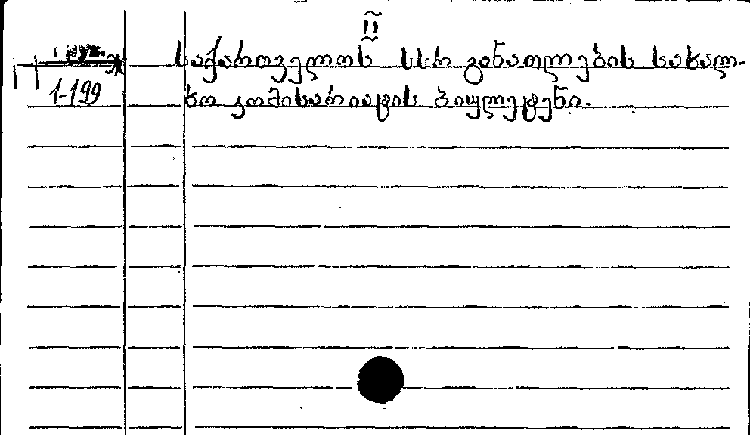 II
საქართველოს სსრ განათლების სახალ-
1-199
ხო კომისარიატის ბიულეტენი.